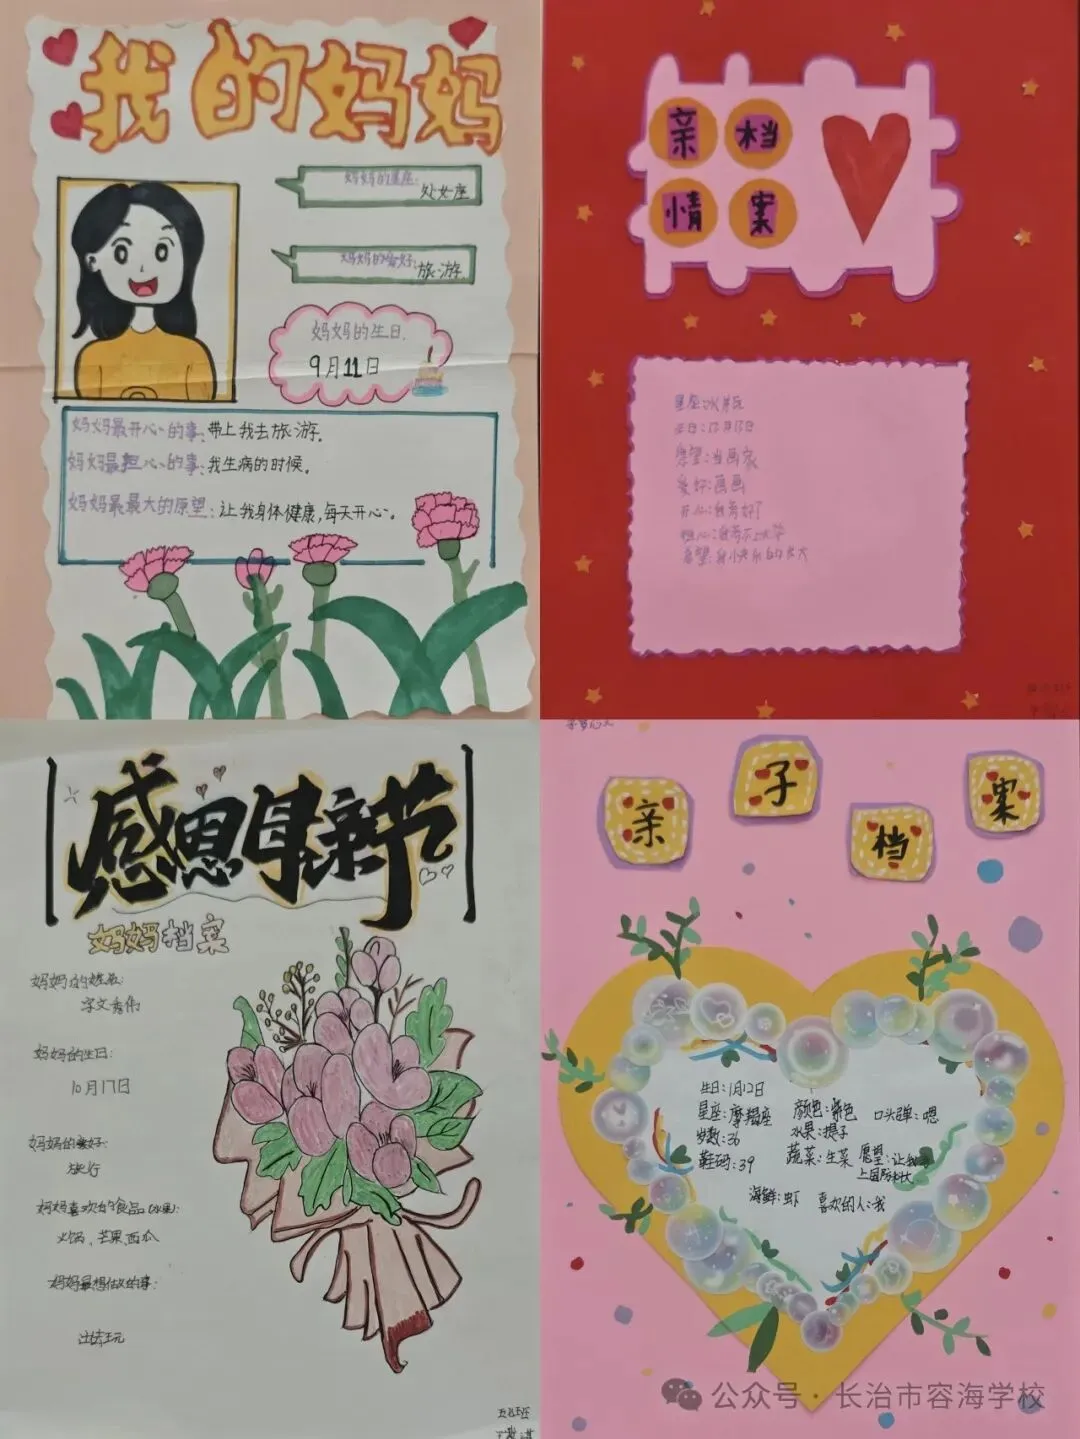 我的妈妈
妈妈的星座:
处女座
妈妈的爱好:
旅游
妈妈的生日.
9月11日
妈妈最开心的事:带上我去旅游.
妈妈最担心的事:我生病的时候。
妈妈最最大的原望:让我身体健康,每天开心。
亲档
情案
生日:12月13日
愿望:当画家
爱好:画画
感恩母亲节
妈妈档案
妈妈的姓名:
宇文秀伟
妈妈的生日:
10月17日
妈妈的爱好:
旅行
妈妈喜欢的食品(水果):
火锅、芒果、西瓜
妈妈最想做的事:
亲子档案
生日:1月12日
星座:摩羯座
岁数:36
鞋码:39
颜色:紫色
水果:提子
蔬菜:生菜
口头弹:嗯
愿望:让我
上国防科大
海鲜:虾
喜欢的人:我
公众号·长治市容海学校